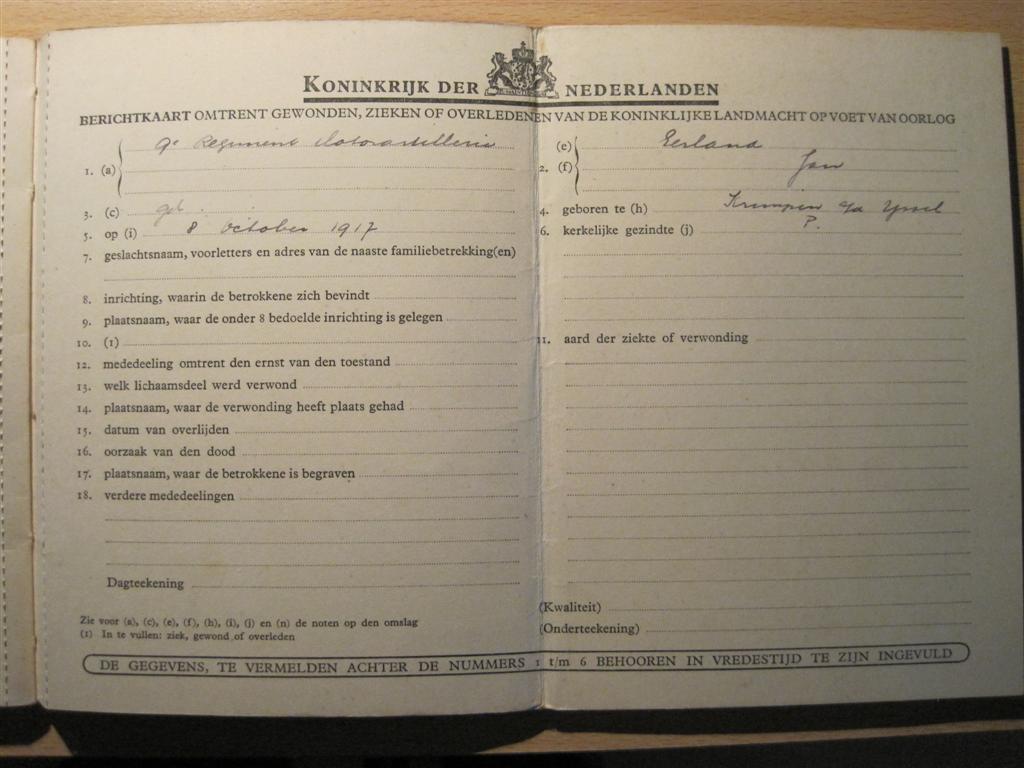 KONINKRIJK DER NEDERLANDEN
BERICHTKAART OMTRENT GEWONDEN, ZIEKEN OF OVERLEDENEN VAN DE KONINKLIJKE LANDMACHT OP VOET VAN OORLOG
1. (a) Regiment Motorartillerie
2. (e) Eerland
(f) Jan
3. (c) gd.
4. geboren te (h) Krimpen a/d Yssel
5. op (i) 8 October 1917
6. kerkelijke gezindte (j) P.
7. geslachtsnaam, voorletters en adres van de naaste familiebetrekking(en)
8. inrichting, waarin de betrokkene zich bevindt
9. plaatsnaam, waar de onder 8 bedoelde inrichting is gelegen
10. (1)
11. aard der ziekte of verwonding
12. mededeeling omtrent den ernst van den toestand
13. welk lichaamsdeel werd verwond
14. plaatsnaam, waar de verwonding heeft plaats gehad
15. datum van overlijden
16. oorzaak van den dood
17. plaatsnaam, waar de betrokkene is begraven
18. verdere mededeelingen
Dagteekening
(Kwaliteit)
(Onderteekening)
Zie voor (a), (c), (e), (f), (h), (i), (j) en (n) de noten op den omslag
(1) In te vullen: ziek, gewond of overleden
DE GEGEVENS, TE VERMELDEN ACHTER DE NUMMERS 1 t/m 6 BEHOOREN IN VREDESTIJD TE ZIJN INGEVULD